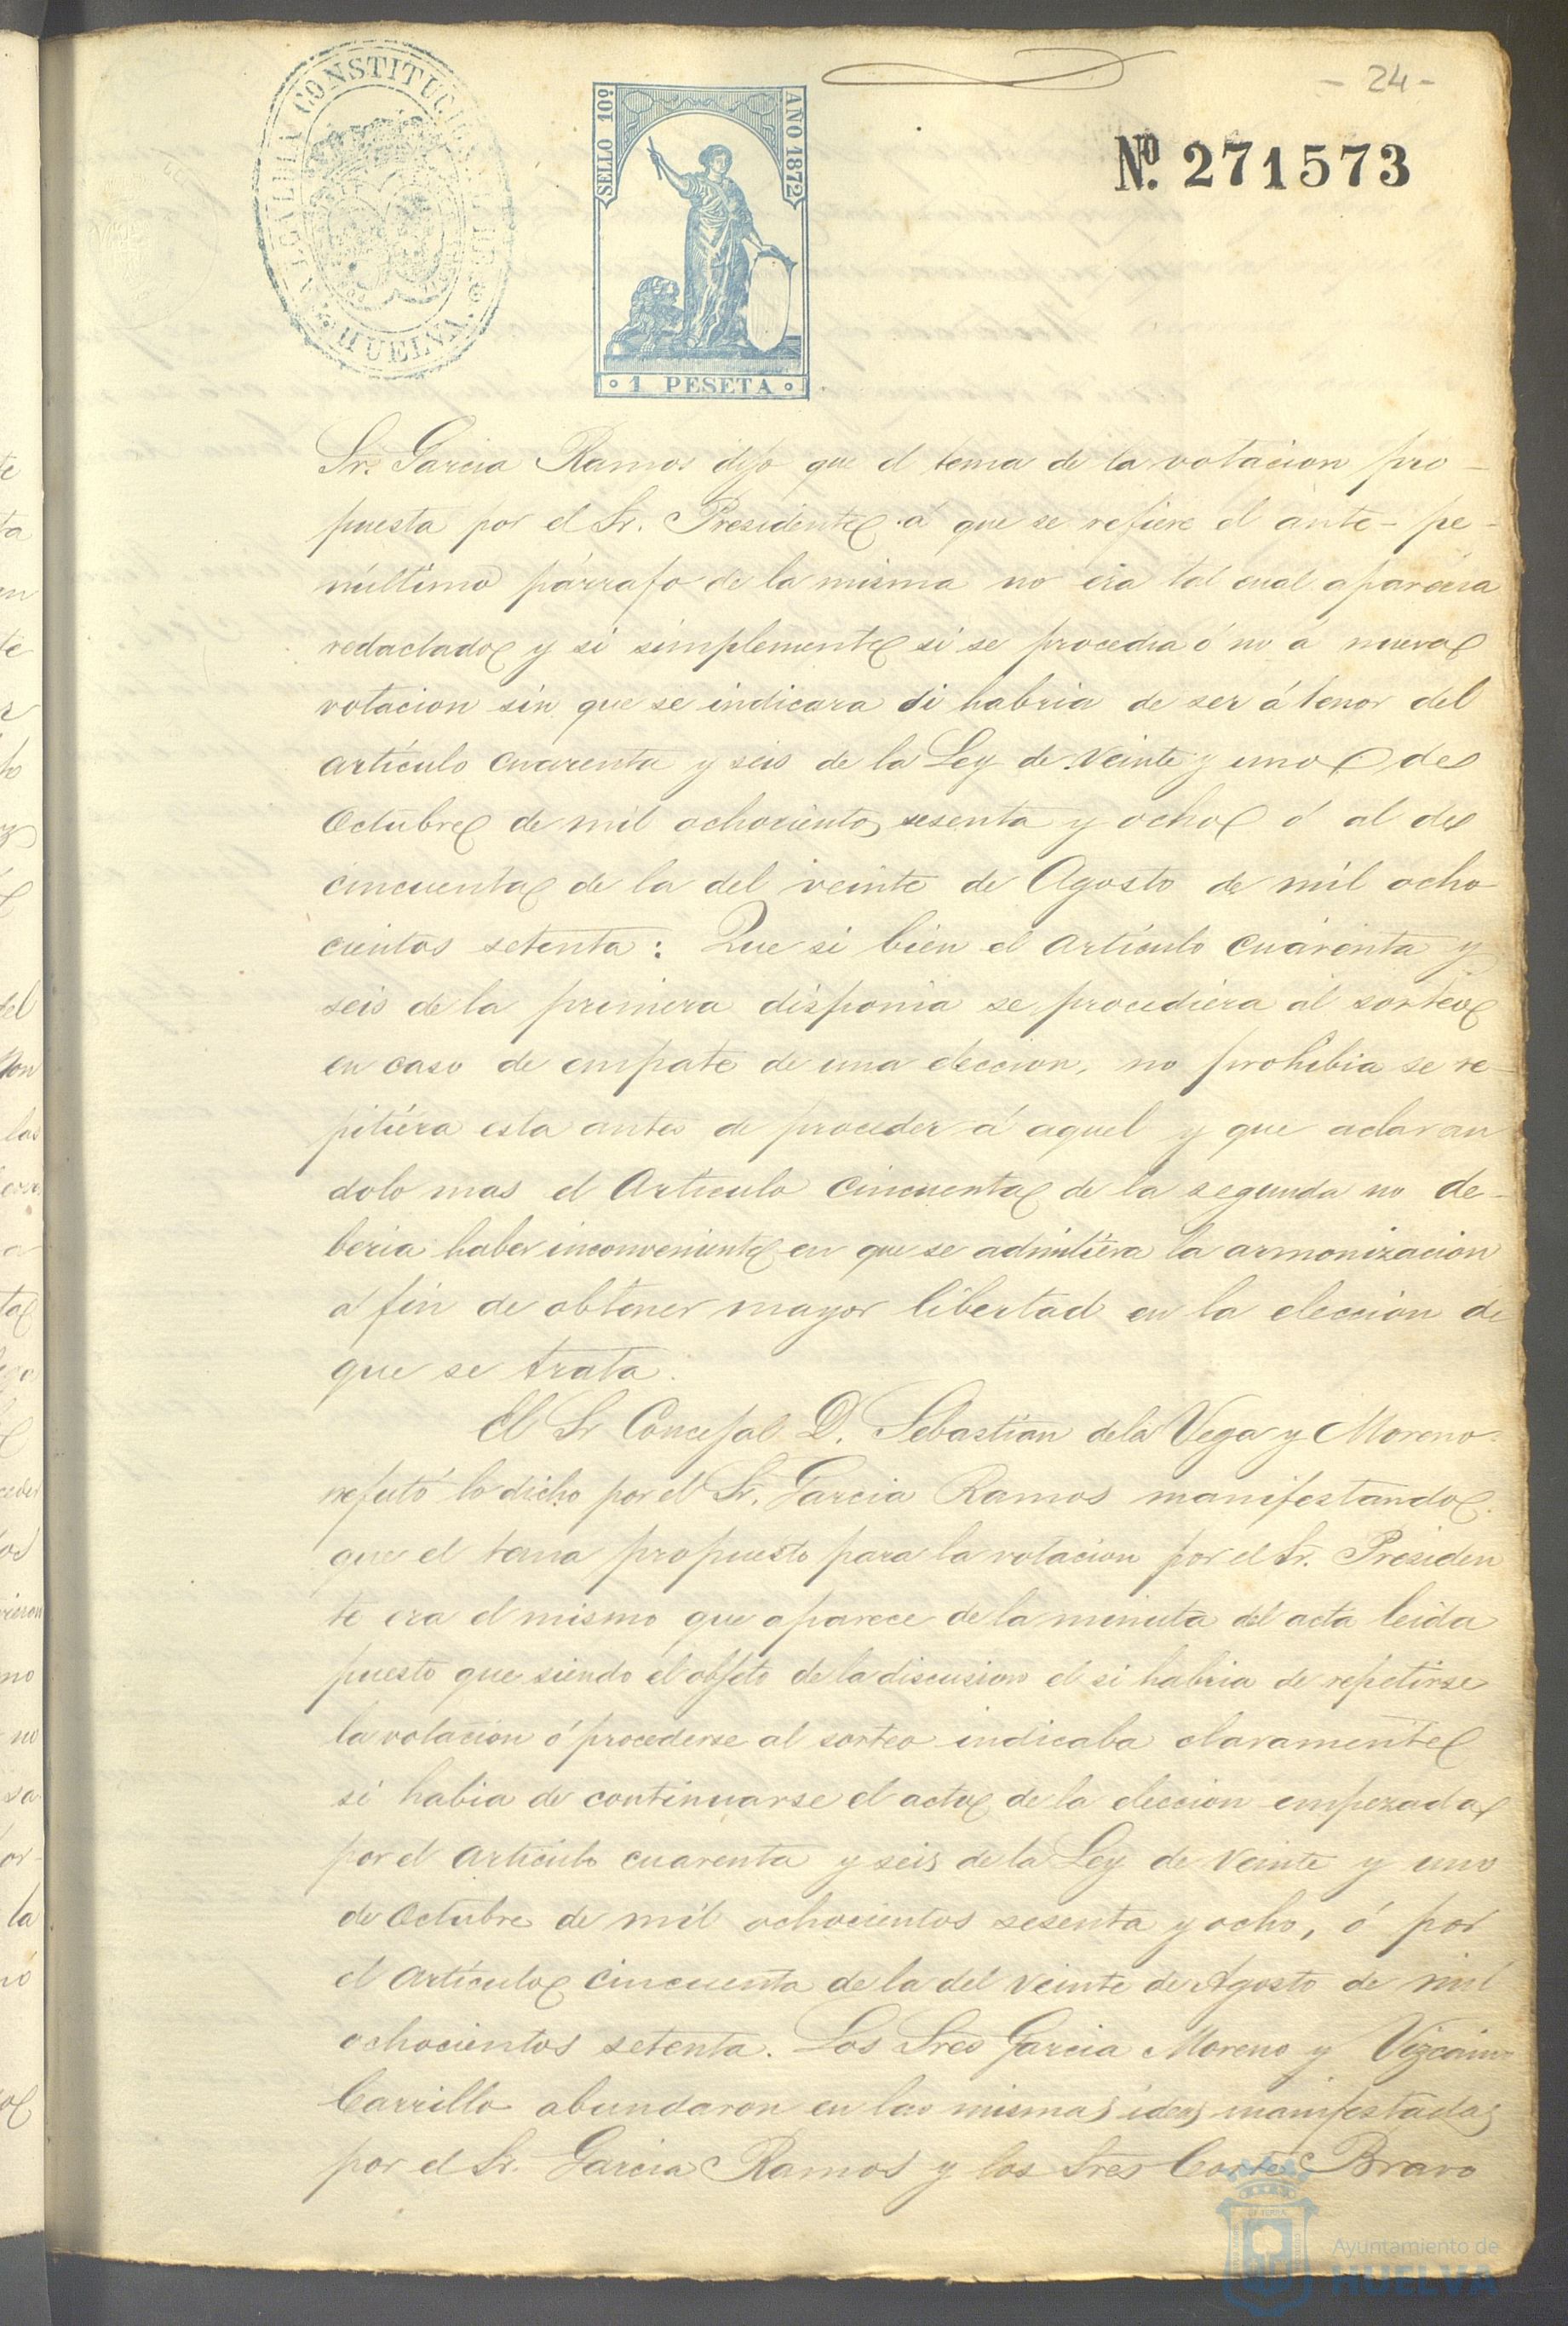 - 24 -
ALCALDIA CONSTITUCIONAL DE
HUELVA
SELLO 10º
AÑO 1872
1 PESETA
Nº. 271573
Sr. Garcia Ramos dijo que el tema de la votacion pro-
puesta por el Sr. Presidente á que se refiere el ante-pe-
núltimo párrafo de la misma no era tal cual aparecia
redactado y si simplemente si se procedia ó no a nueva
votacion sin que se indicara si habria de ser á tenor del
artículo cuarenta y seis de la Ley de veinte y uno de
Octubre de mil ochocientos sesenta y ocho ó al de
cincuenta de la del veinte de Agosto de mil ocho
cientos setenta: Que si bien el artículo cuarenta y
seis de la primera disponia se procediera al sorteo
en caso de empate de una eleccion, no prohibia se re-
pitiera esta antes de proceder á aquel y que aclaran
dolo mas el Artículo cincuenta de la segunda no de-
beria haber inconveniente en que se admitiera la armonizacion
á fin de obtener mayor libertad en la eleccion de
que se trata.
El Sr Concejal D. Sebastian de la Vega y Moreno
refutó lo dicho por el Sr. Garcia Ramos manifestando
que el tema propuesto para la votacion por el Sr. Presiden
te era el mismo que aparece de la minuta del acta leida
puesto que siendo el objeto de la discusion el si habria de repetirse
la votacion ó procederse al sorteo indicaba claramente
si habia de continuarse el acto de la eleccion empezada
por el artículo cuarenta y seis de la Ley de veinte y uno
de Octubre de mil ochocientos sesenta y ocho, ó por
el artículo cincuenta de la del veinte de Agosto de mil
ochocientos setenta. Los Sres Garcia Moreno y Vizcaino
Carrillo abundaron en las mismas ideas manifestadas
por el Sr. Garcia Ramos y los Sres Cortes Bravo
Ayuntamiento de
HUELVA